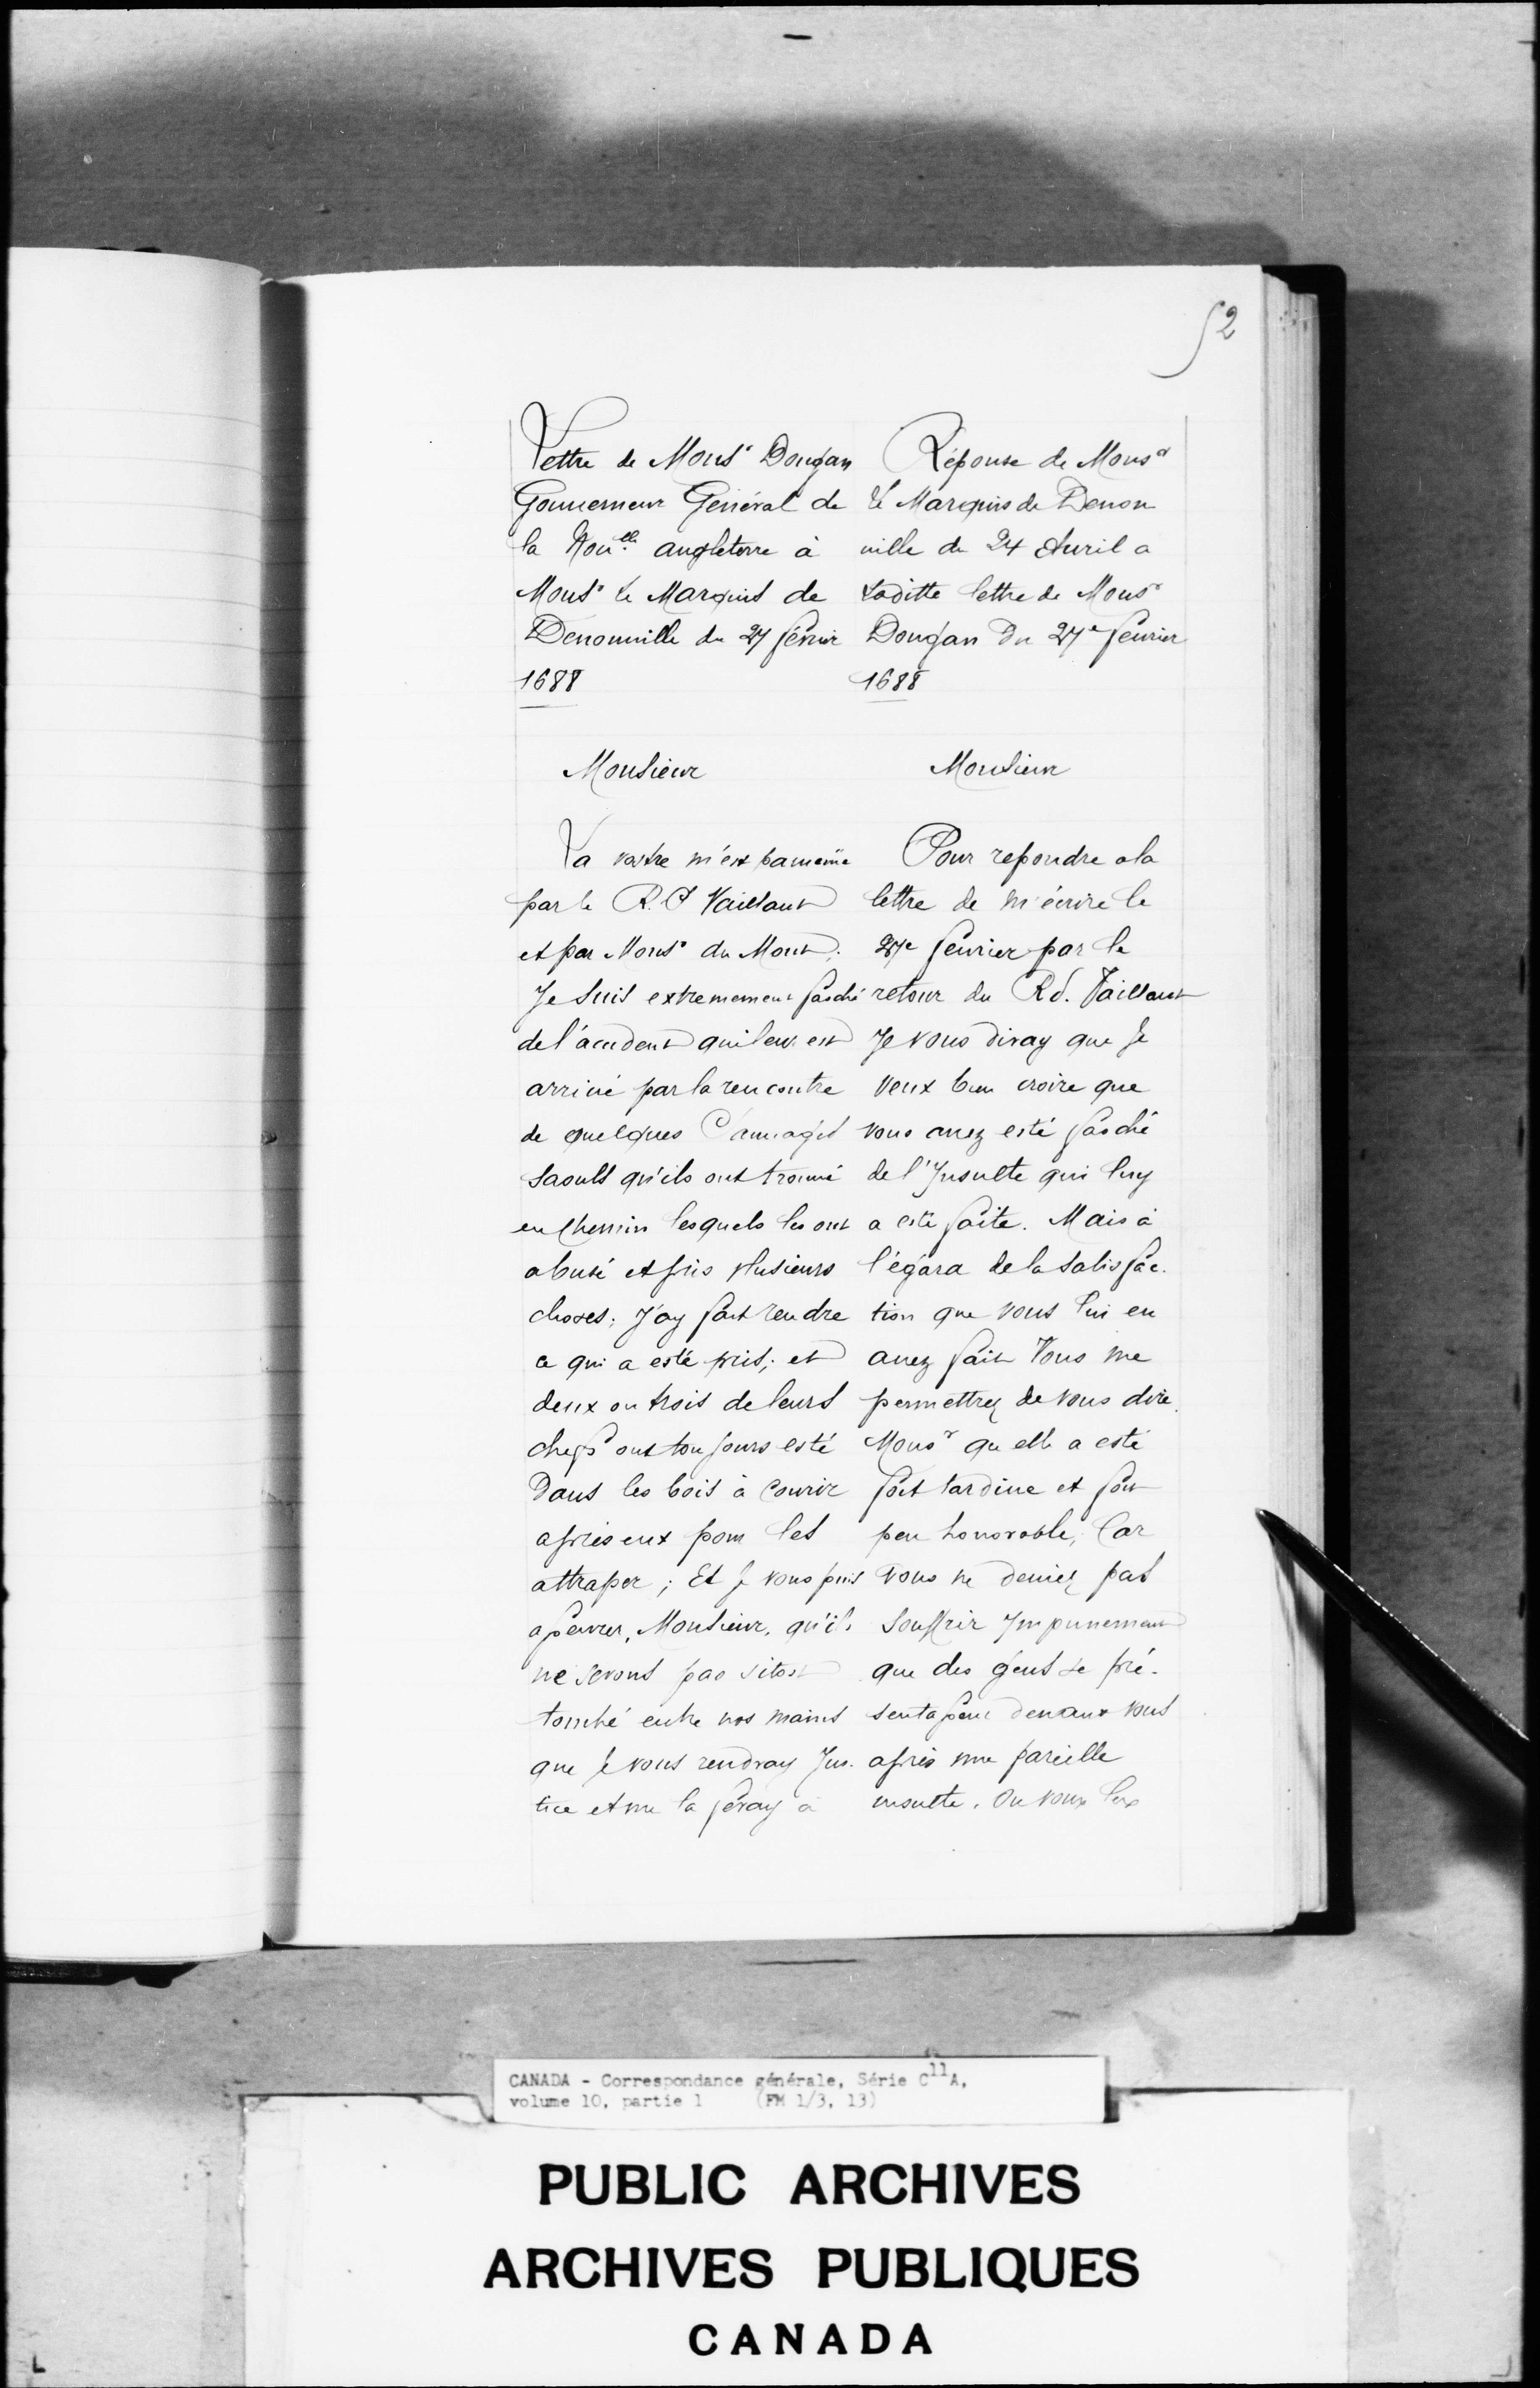 52
Lettre de Mons.r Dongan
Gouuerneur Général de
la Nou.elle angleterre à
Mons.r le Marquis de
Denonuille du 27 féurier
1688
Monsieur
La vostre m'est paruenüe
par le R. P Vaillant
et par Mons.r du Mont.
Je suis extremement fasché
de l'accident qui leur est
arriué par la rencontre
de quelques Sauuages
saouls qu'ils ont trouué
en chemin lesquels les ont
abusé et pris plusieurs
choses; J'ay fait rendre
ce qui a esté pris; et
deux ou trois de leurs
chefs ont toujours esté
dans les bois à courir
après eux pour les
attraper; Et je vous puis
asseurer, Monsieur, qu'ils
ne seront pas sitost
tombé entre nos mains
que Je vous rendray Jus-
tice et me la feray à
Réponse de Mons.r
Le Marquis de Denon
uille du 24 Auril a
Laditte lettre de Mons.r
Dongan du 27e feurier
1688
Monsieur
Pour repondre a la
lettre de m'écrire le
27e feurier par le
retour du Rd. Vaillant
Je vous diray que Je
veux bien croire que
vous auez esté fasché
de l'Insulte qui luy
a esté faite. Mais à
l'égard de la satisfac-
tion que vous lui en
auez fait Vous me
permettrez de vous dire,
Mons.r qu elle a esté
fort tardiue et fort
peu honorable, Car
vous ne deuiez pas
souffrir Impunement
que des gens se pré-
sentassent deuant vous
après une pareille
insulte. On vous
CANADA - Correspondance générale, Série C11A,
volume 10, partie 1 (FM 1/3, 13)
PUBLIC ARCHIVES
ARCHIVES PUBLIQUES
CANADA